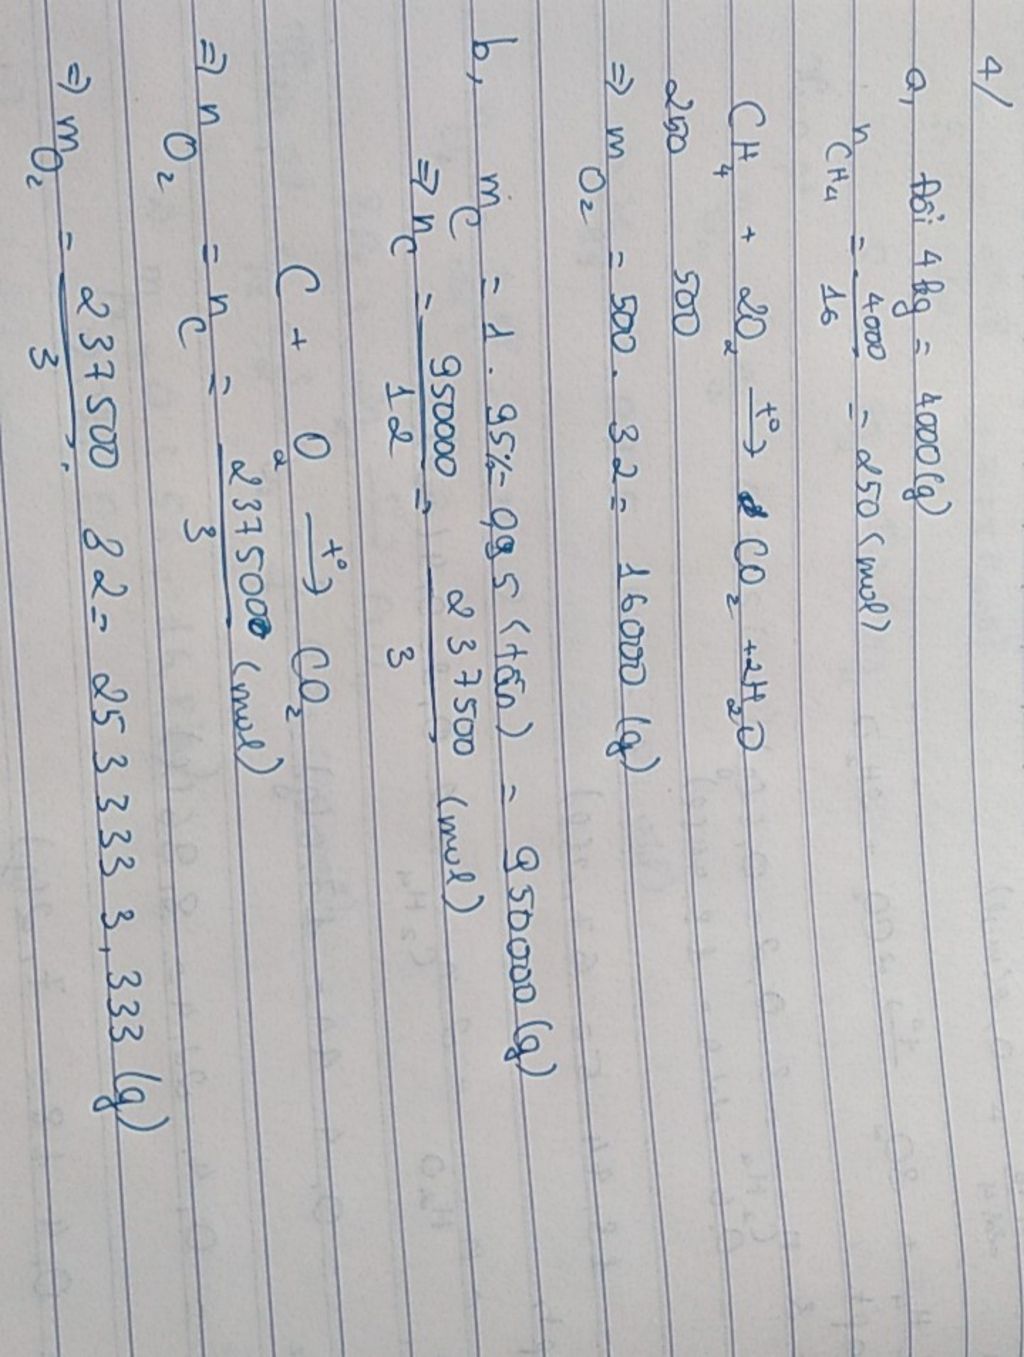 4/
a, Đổi 4kg = 4000(g)
n CH4 = 4000/16 = 250 (mol)
CH4 + 2O2 t°→ CO2 + 2H2O
250 500
⇒ m O2 = 500 . 32 = 16000 (g)
b, mC = 1 . 95% = 0,95 (tấn) = 950000 (g)
⇒ nC = 950000/12 = 237500/3 (mol)
C + O2 t°→ CO2
⇒ n O2 = nC = 237500/3 (mol)
⇒ m O2 = 237500/3 . 32 = 2533333,333 (g)